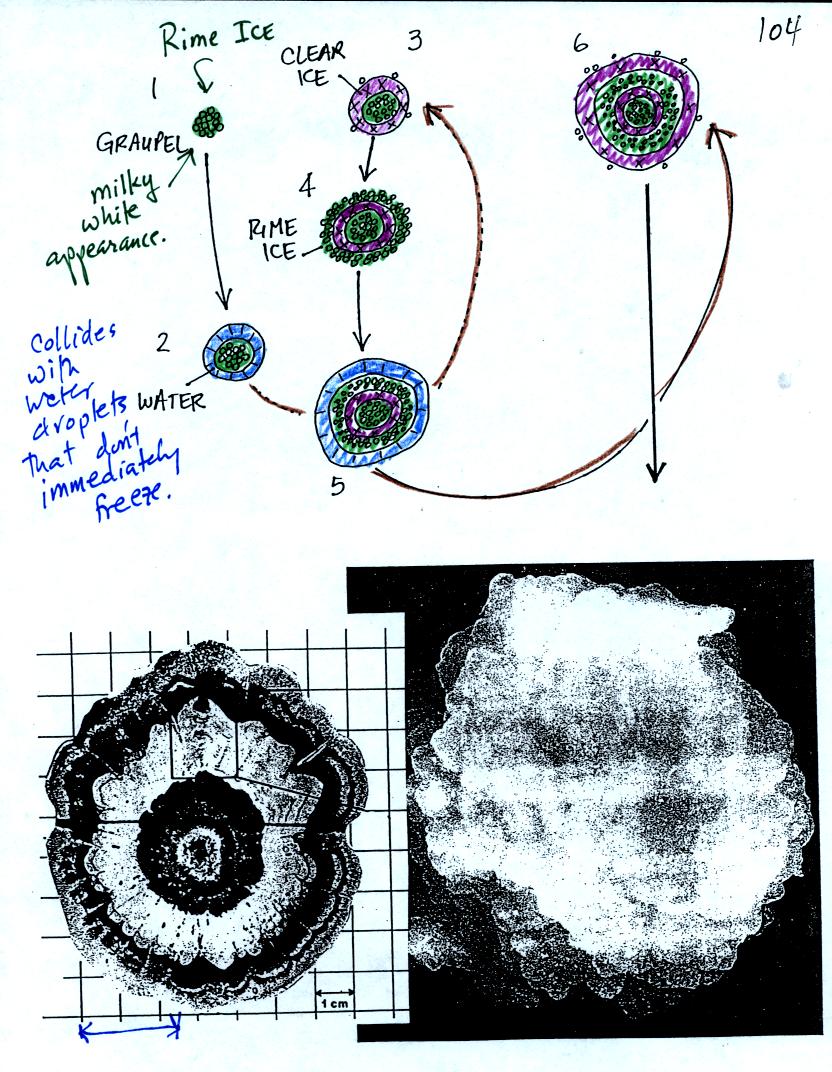 104
Rime ICE
1
GRAUPEL
milky
white
appearance.
2
WATER
Collides
with
water
droplets
that don't
immediately
freeze.
3
CLEAR
ICE
4
RIME
ICE
5
6
1 cm